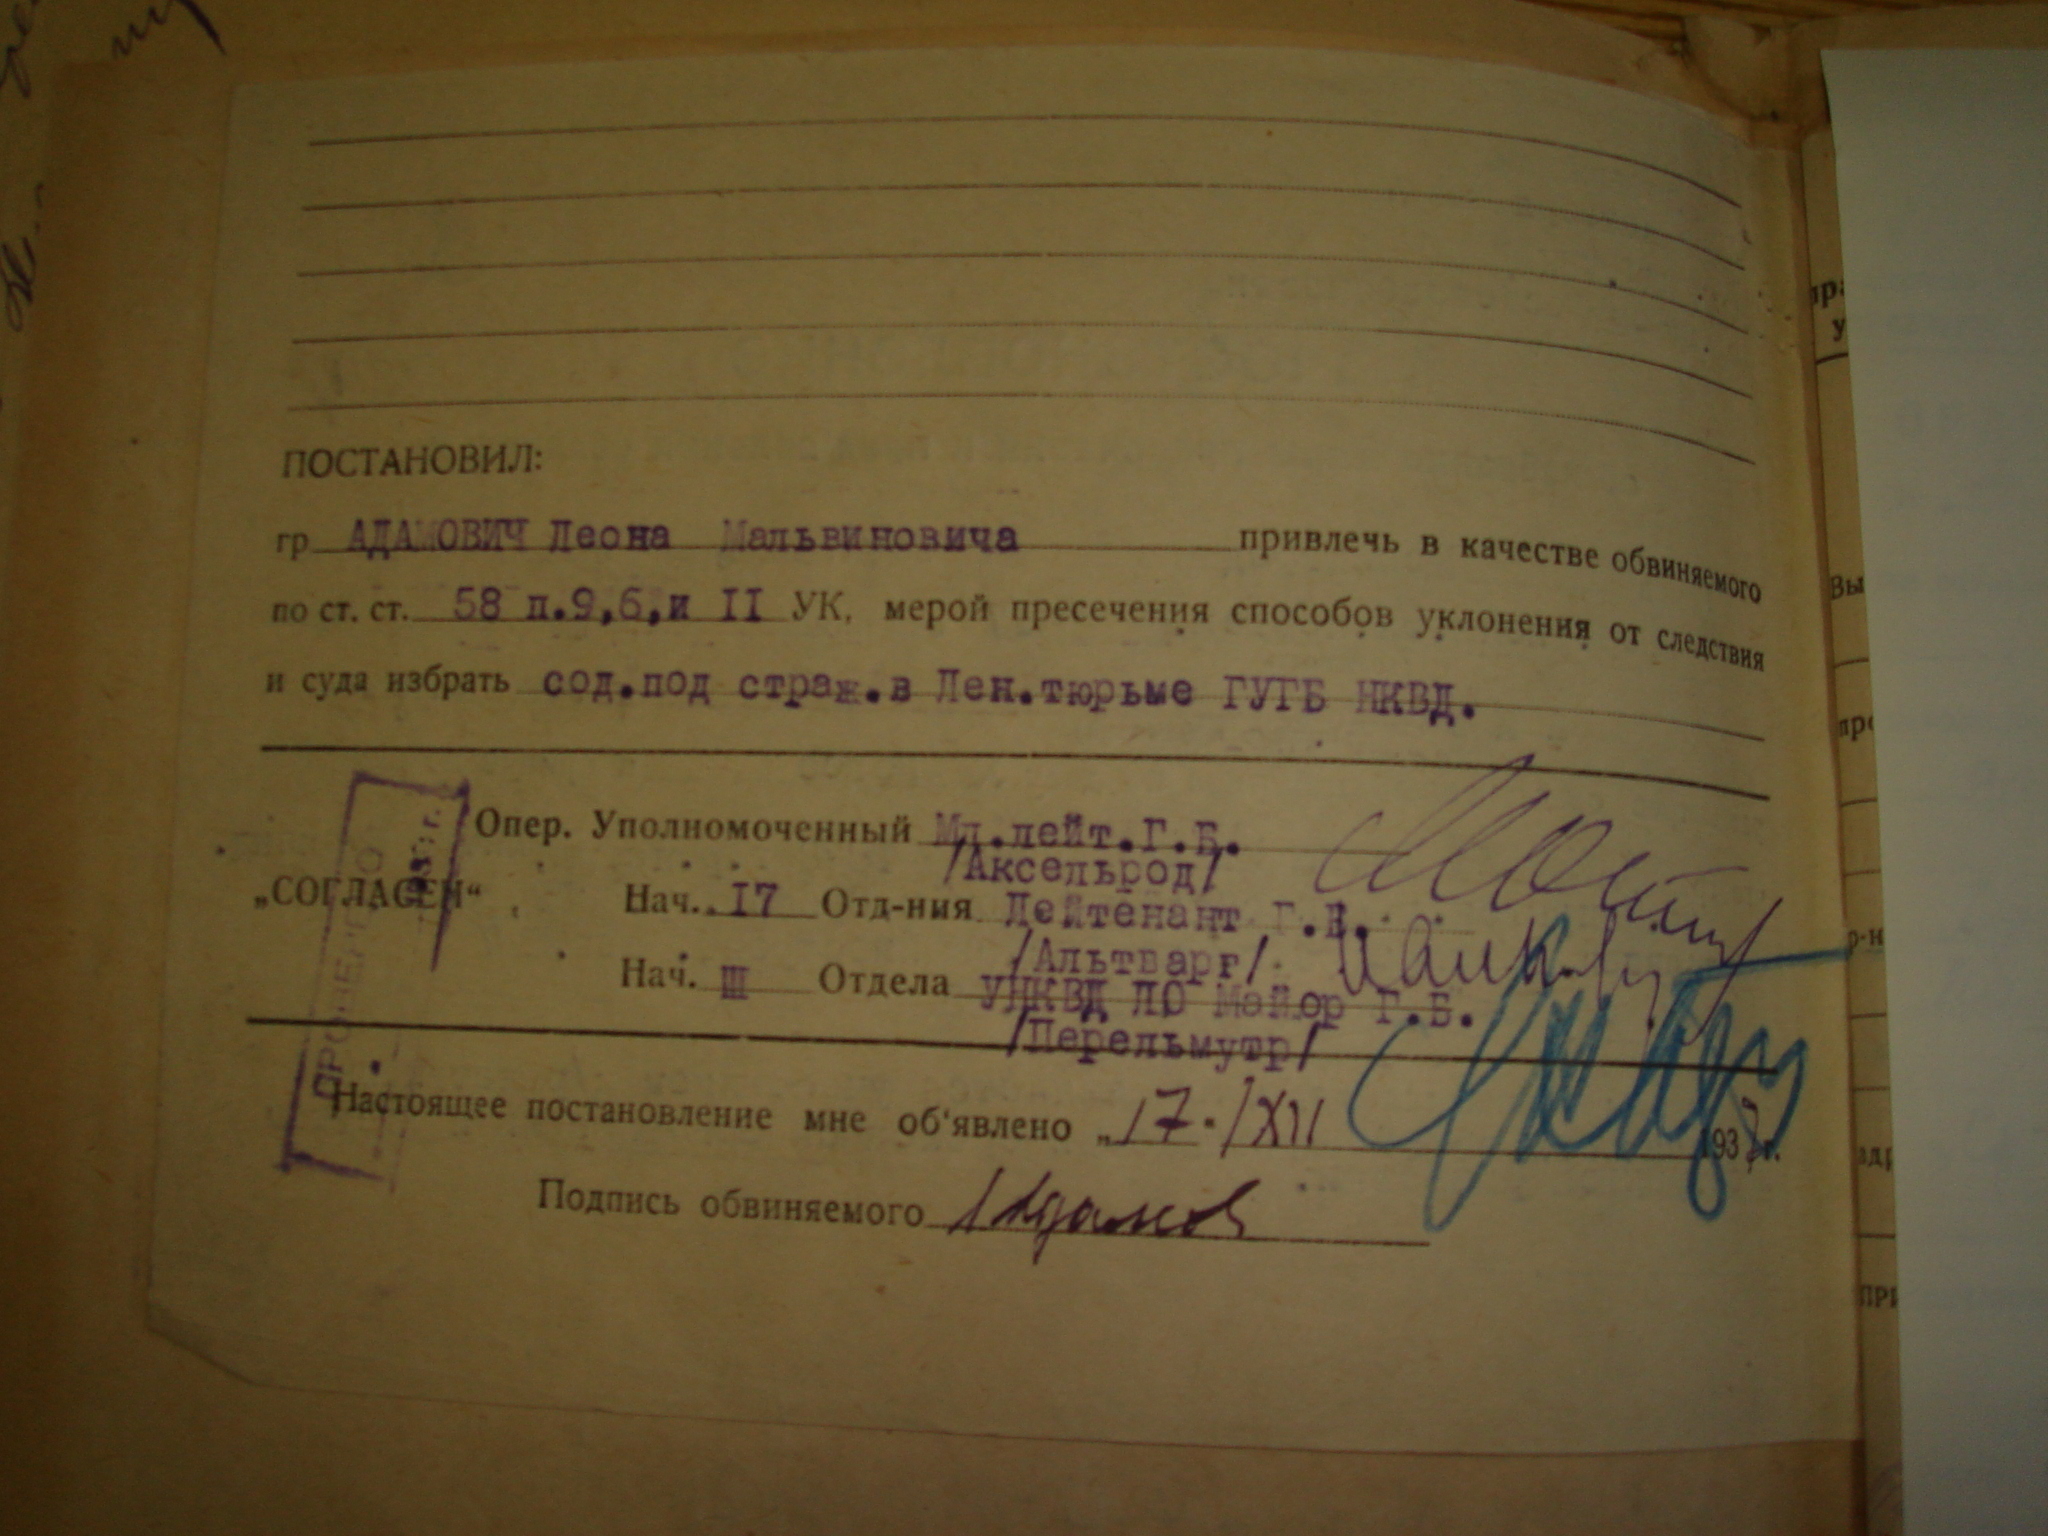 ПОСТАНОВИЛ:
гр АДАМОВИЧ Леона Мальвиновича привлечь в качестве обвиняемого
по ст. ст. 58 п.9,6,и II УК, мерой пресечения способов уклонения от следствия
и суда избрать сод.под страж.в Лен.тюрьме ГУГБ НКВД.
Опер. Уполномоченный Мл.лейт.Г.Б.
/Аксельрод/
„СОГЛАСЕН“ Нач. I7 Отд-ния Лейтенант Г.Б.
/Альтварг/
Нач. III Отдела УНКВД ЛО Майор Г.Б.
/Перельмутр/
ПРОВЕРЕНО
193 г.
Настоящее постановление мне об'явлено „17." /XII 1937 г.
Подпись обвиняемого Адамов